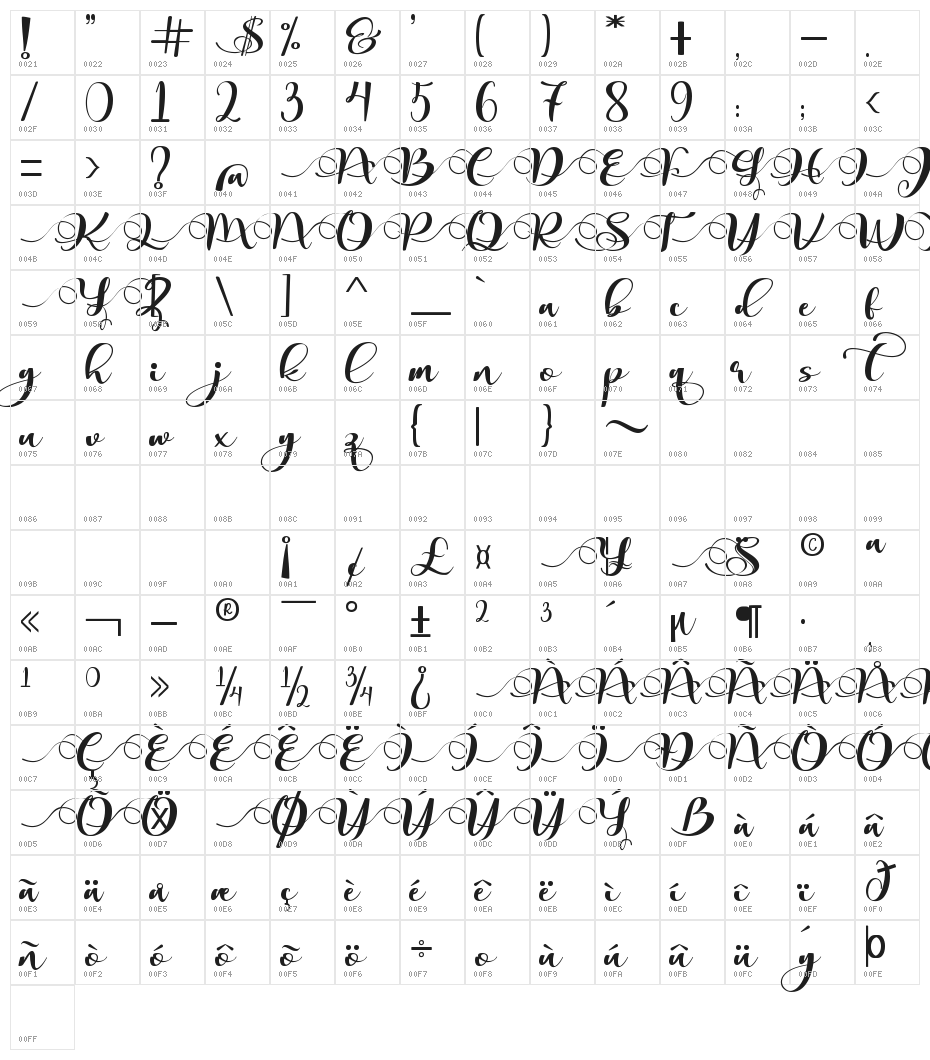 ! " # $ % & ' ( ) * + , - .
0021 0022 0023 0024 0025 0026 0027 0028 0029 002A 002B 002C 002D 002E
/ 0 1 2 3 4 5 6 7 8 9 : ; <
002F 0030 0031 0032 0033 0034 0035 0036 0037 0038 0039 003A 003B 003C
= > ? @ A B C D E F G H I J
003D 003E 003F 0040 0041 0042 0043 0044 0045 0046 0047 0048 0049 004A
K L M N O P Q R S T U V W
004B 004C 004D 004E 004F 0050 0051 0052 0053 0054 0055 0056 0057 0058
Y Z [ \ ] ^ _ ` a b c d e f
0059 005A 005B 005C 005D 005E 005F 0060 0061 0062 0063 0064 0065 0066
g h i j k l m n o p q r s t
0067 0068 0069 006A 006B 006C 006D 006E 006F 0070 0071 0072 0073 0074
u v w x y z { | } ~
0075 0076 0077 0078 0079 007A 007B 007C 007D 007E 0080 0082 0084 0085
0086 0087 0088 008B 008C 0091 0092 0093 0094 0095 0096 0097 0098 0099
¡ ¢ £ ¤ ¥ ¦ § ¨ © ª
009B 009C 009F 00A0 00A1 00A2 00A3 00A4 00A5 00A6 00A7 00A8 00A9 00AA
« ¬ - ® ¯ ° ± ² ³ ´ µ ¶ · ¸
00AB 00AC 00AD 00AE 00AF 00B0 00B1 00B2 00B3 00B4 00B5 00B6 00B7 00B8
¹ º » ¼ ½ ¾ ¿ À Á Â Ã Ä Å
00B9 00BA 00BB 00BC 00BD 00BE 00BF 00C0 00C1 00C2 00C3 00C4 00C5 00C6
Ç È É Ê Ë Ì Í Î Ï Ð Ñ Ò Ó
00C7 00C8 00C9 00CA 00CB 00CC 00CD 00CE 00CF 00D0 00D1 00D2 00D3 00D4
Õ Ö × Ø Ù Ú Û Ü Ý ß à á â
00D5 00D6 00D7 00D8 00D9 00DA 00DB 00DC 00DD 00DE 00DF 00E0 00E1 00E2
ã ä å æ ç è é ê ë ì í î ï ð
00E3 00E4 00E5 00E6 00E7 00E8 00E9 00EA 00EB 00EC 00ED 00EE 00EF 00F0
ñ ò ó ô õ ö ÷ o ù ú û ü ý þ
00F1 00F2 00F3 00F4 00F5 00F6 00F7 00F8 00F9 00FA 00FB 00FC 00FD 00FE
00FF